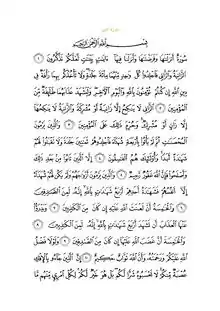 سورة النور
بِسْمِ اللَّهِ الرَّحْمَٰنِ الرَّحِيمِ
سُورَةٌ أَنزَلْنَاهَا وَفَرَضْنَاهَا وَأَنزَلْنَا فِيهَا آيَاتٍ بَيِّنَاتٍ لَّعَلَّكُمْ تَذَكَّرُونَ ١
الزَّانِيَةُ وَالزَّانِي فَاجْلِدُوا كُلَّ وَاحِدٍ مِّنْهُمَا مِائَةَ جَلْدَةٍ وَلَا تَأْخُذْكُم بِهِمَا رَأْفَةٌ فِي
دِينِ اللَّهِ إِن كُنتُمْ تُؤْمِنُونَ بِاللَّهِ وَالْيَوْمِ الْآخِرِ وَلْيَشْهَدْ عَذَابَهُمَا طَائِفَةٌ مِّنَ
الْمُؤْمِنِينَ ٢ الزَّانِي لَا يَنكِحُ إِلَّا زَانِيَةً أَوْ مُشْرِكَةً وَالزَّانِيَةُ لَا يَنكِحُهَا
إِلَّا زَانٍ أَوْ مُشْرِكٌ وَحُرِّمَ ذَٰلِكَ عَلَى الْمُؤْمِنِينَ ٣ وَالَّذِينَ يَرْمُونَ
الْمُحْصَنَاتِ ثُمَّ لَمْ يَأْتُوا بِأَرْبَعَةِ شُهَدَاءَ فَاجْلِدُوهُمْ ثَمَانِينَ جَلْدَةً وَلَا تَقْبَلُوا لَهُمْ
شَهَادَةً أَبَدًا وَأُولَٰئِكَ هُمُ الْفَاسِقُونَ ٤ إِلَّا الَّذِينَ تَابُوا مِن بَعْدِ ذَٰلِكَ
وَأَصْلَحُوا فَإِنَّ اللَّهَ غَفُورٌ رَّحِيمٌ ٥ وَالَّذِينَ يَرْمُونَ أَزْوَاجَهُمْ وَلَمْ يَكُن لَّهُمْ شُهَدَاءُ
إِلَّا أَنفُسُهُمْ فَشَهَادَةُ أَحَدِهِمْ أَرْبَعُ شَهَادَاتٍ بِاللَّهِ إِنَّهُ لَمِنَ الصَّادِقِينَ
٦ وَالْخَامِسَةُ أَنَّ لَعْنَتَ اللَّهِ عَلَيْهِ إِن كَانَ مِنَ الْكَاذِبِينَ ٧ وَيَدْرَؤُا
عَنْهَا الْعَذَابَ أَن تَشْهَدَ أَرْبَعَ شَهَادَاتٍ بِاللَّهِ إِنَّهُ لَمِنَ الْكَاذِبِينَ ٨
وَالْخَامِسَةَ أَنَّ غَضَبَ اللَّهِ عَلَيْهَا إِن كَانَ مِنَ الصَّادِقِينَ ٩ وَلَوْلَا فَضْلُ
اللَّهِ عَلَيْكُمْ وَرَحْمَتُهُ وَأَنَّ اللَّهَ تَوَّابٌ حَكِيمٌ ١٠ إِنَّ الَّذِينَ جَاءُو بِالْإِفْكِ
عُصْبَةٌ مِّنكُمْ لَا تَحْسَبُوهُ شَرًّا لَّكُم بَلْ هُوَ خَيْرٌ لَّكُمْ لِكُلِّ امْرِئٍ مِّنْهُم مَّا